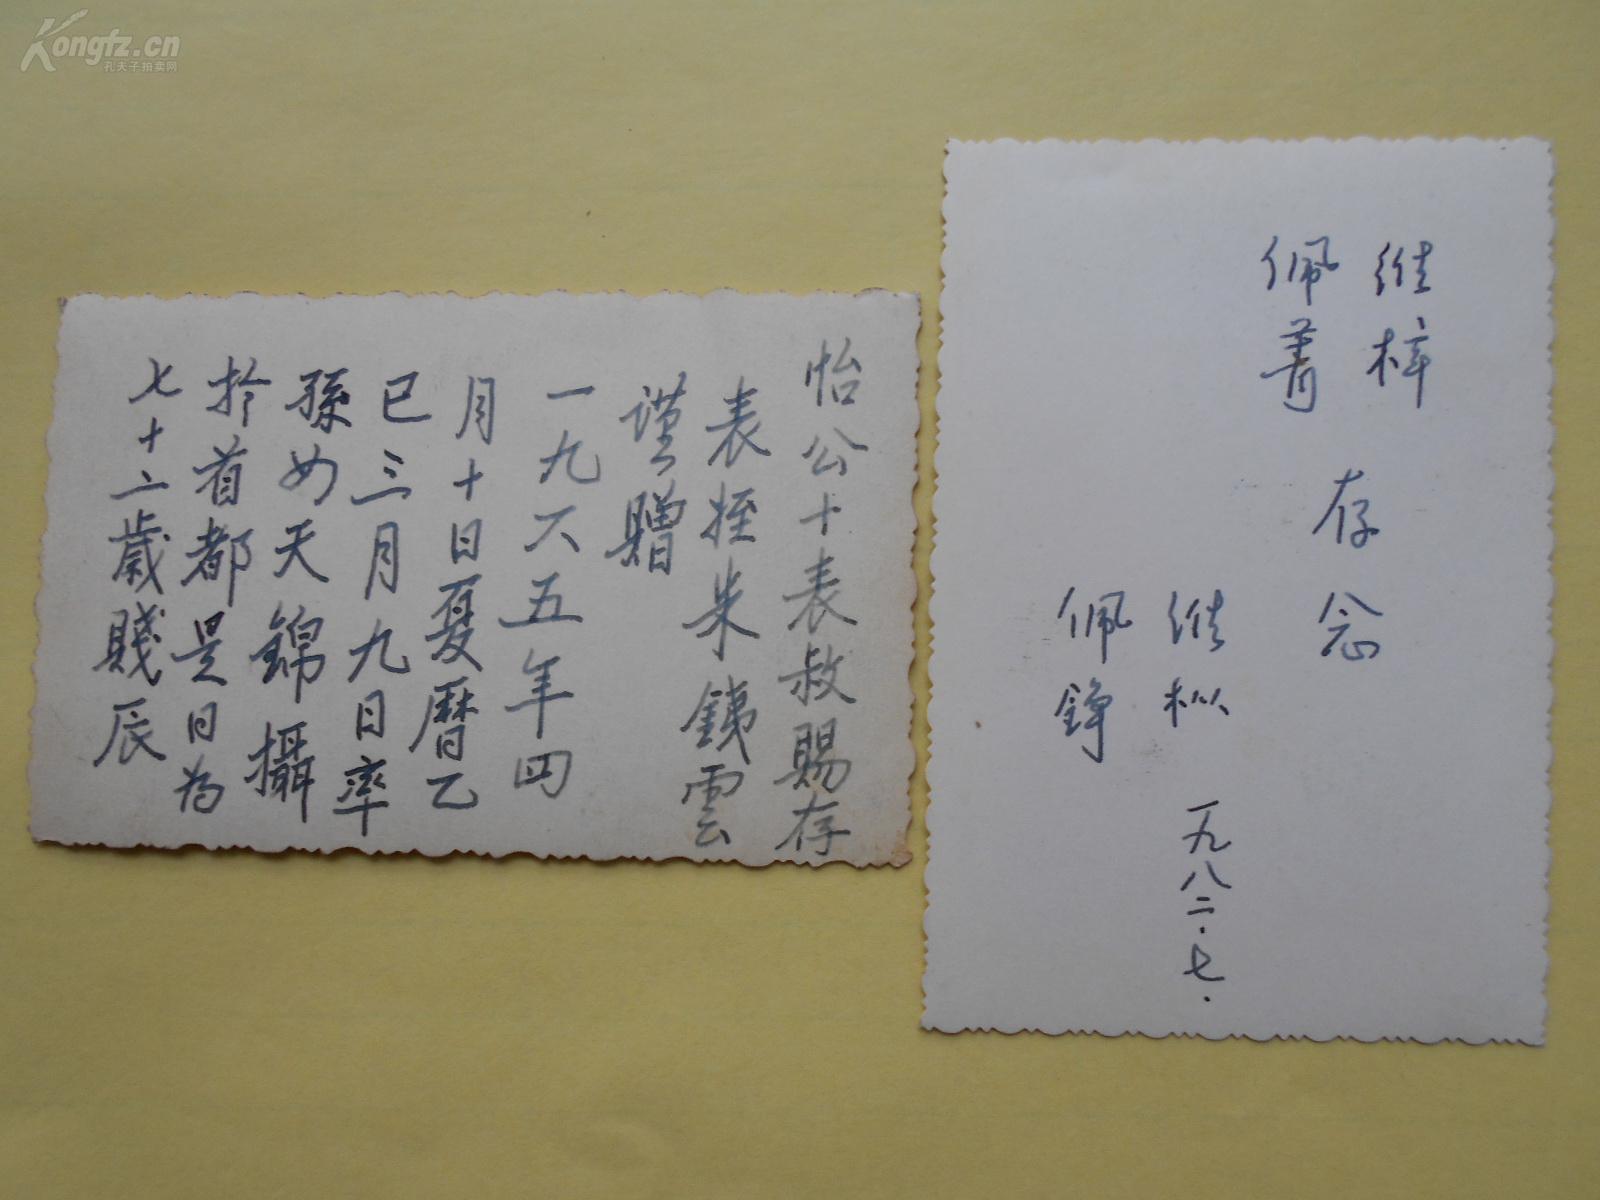 Kongfz.cn
孔夫子拍卖网
怡公十表叔賜存
表姪朱銕雲
謹贈
一九六五年四
月十日夏曆乙
巳三月九日率
孫女天錦攝
扵首都是日為
七十二歲賤辰
维梓
佩菁
存念
维枞
佩錚
一九八二.七.